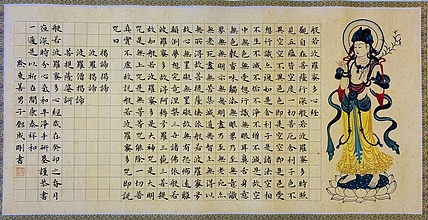 般若波羅蜜多心經
觀自在菩薩行深般若波羅蜜多時照
見五蘊皆空度一切苦厄舍利子色不
異空空不異色色即是空空即是色受
想行識亦復如是舍利子是諸法空相
不生不滅不垢不淨不增不減是故空
中無色無受想行識無眼耳鼻舌身意
無色聲香味觸法無眼界乃至無意識
界無無明亦無無明盡乃至無老死亦
無老死盡無苦集滅道無智亦無得以
無所得故菩提薩埵依般若波羅蜜多
故心無罣礙無罣礙故無有恐怖遠離
顛倒夢想究竟涅槃三世諸佛依般若
波羅蜜多故得阿耨多羅三藐三菩提
故知般若波羅蜜多是大神咒是大明
咒是無上咒是無等等咒能除一切苦
真實不虛故說般若波羅蜜多咒即說
咒曰
揭諦揭諦
波羅揭諦
波羅僧揭諦
菩提薩婆訶
般若波羅蜜多心經 歲次癸卯之春月
夜深時分心氣和平
一遍是以祈在閒康泰祥和
善男子
剛書